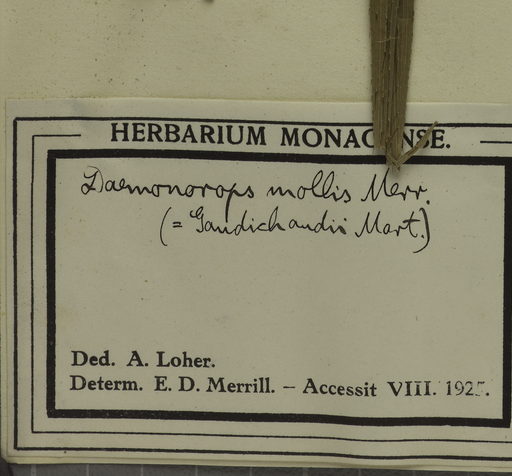 HERBARIUM MONACENSE.
Daemonorops mollis Merr.
(= Gaudichaudii Mart.)
Ded. A. Loher.
Determ. E. D. Merrill. – Accessit VIII. 1925.